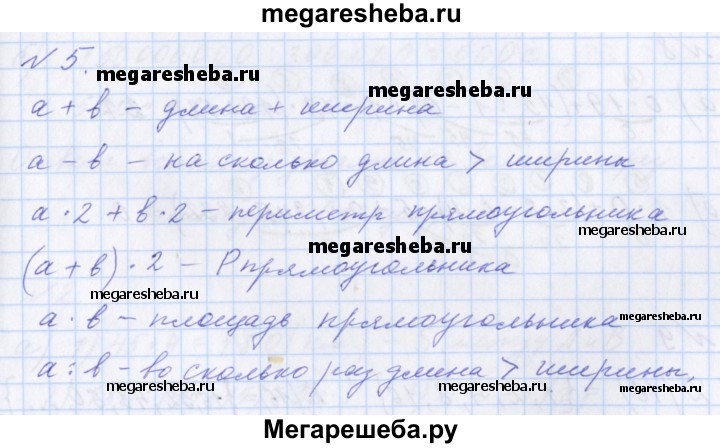 megaresheba.ru
N 5.
megaresheba.ru
megaresheba.ru
a + b - длина + ширина
megaresheba.ru
a - b - на сколько длина > ширины
a · 2 + b · 2 - периметр прямоугольника
megaresheba.ru
megaresheba.ru
(a + b) · 2 - P прямоугольника
megaresheba.ru
megaresheba.ru
a · b - площадь прямоугольника
megaresheba.ru
a : b - во сколько раз длина > ширины.
megaresheba.ru
megaresheba.ru
Мегарешеба.ру